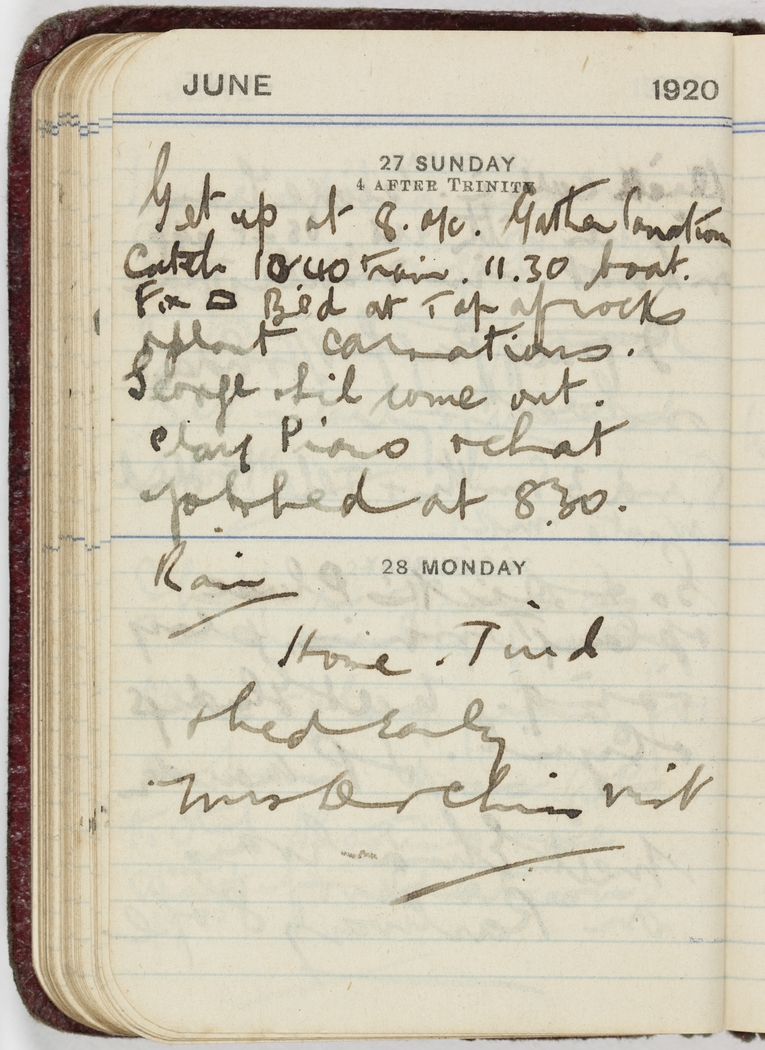 JUNE 1920
27 SUNDAY
4 AFTER TRINITY
Get up at 8. Gather Carnations
Catch 10 40 train. 11.30 boat.
Fix Bed at Top of rocks
& plant carnations.
George & Lil come out.
Play Piano & chat
& to bed at 8.30.
28 MONDAY
Rain
Home. Tired
& bed Early
Mrs & Chris visit